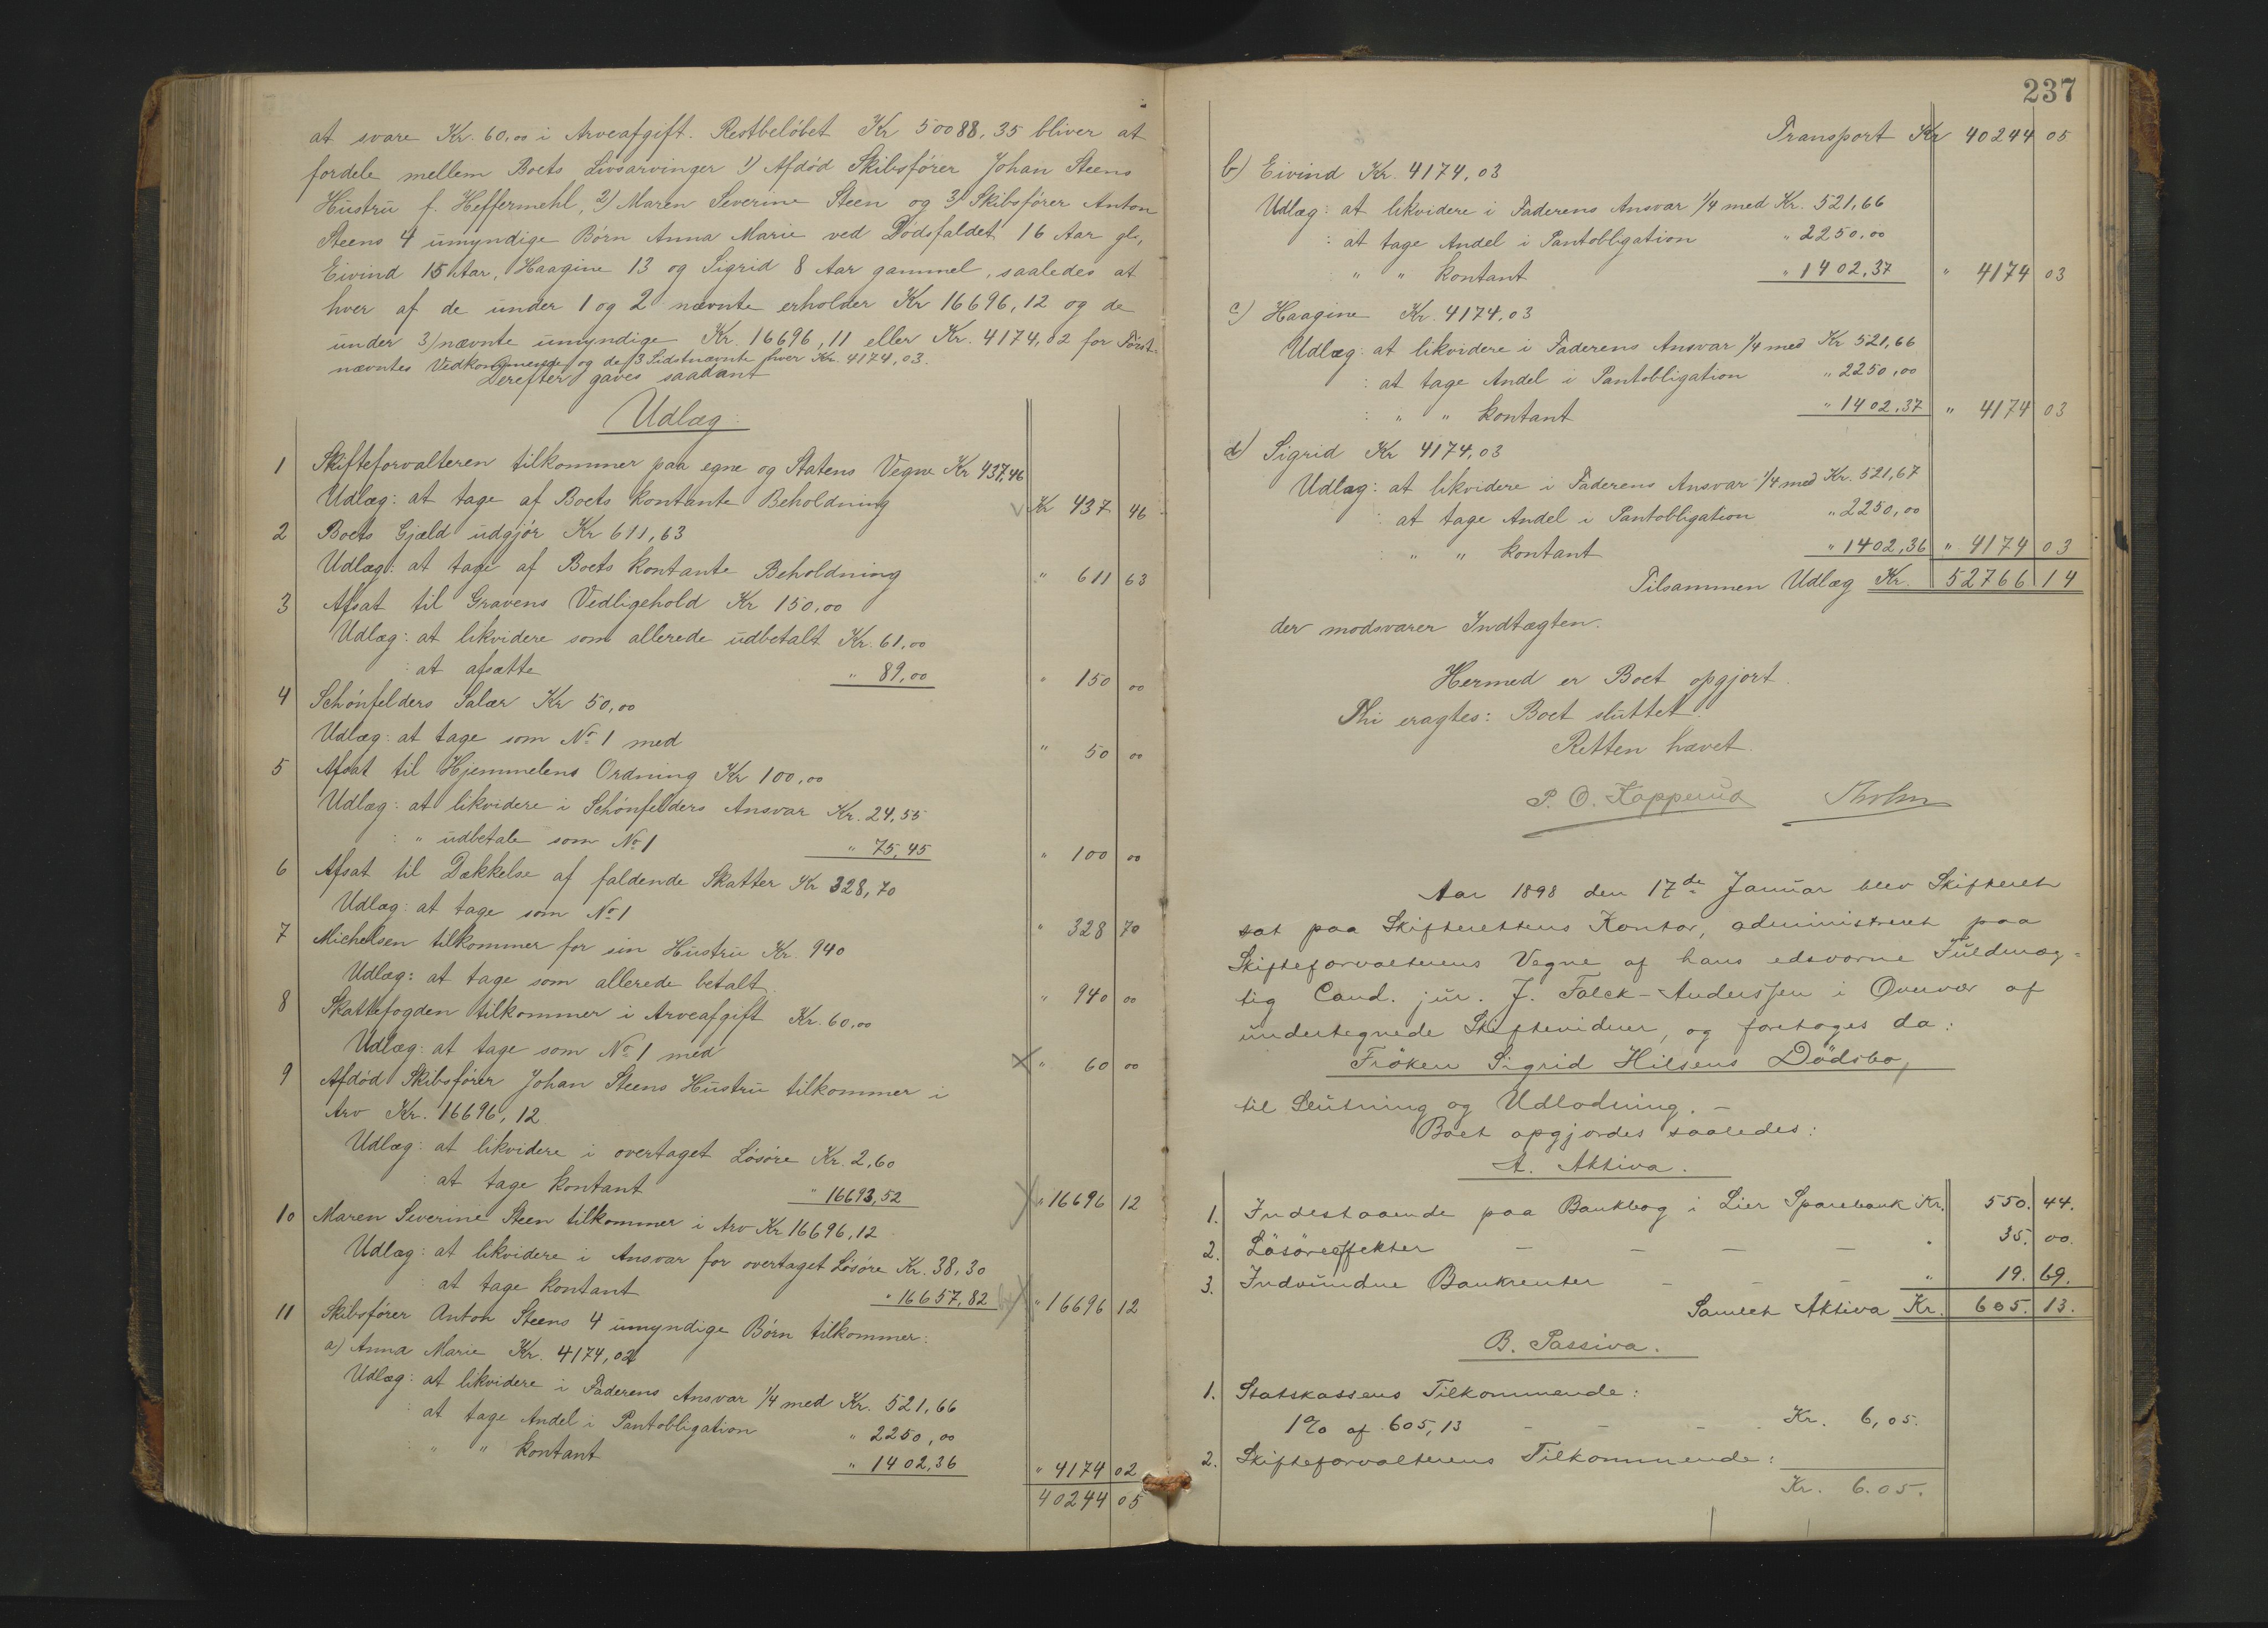 at svare Kr. 60,00 i Arveafgift. Restbeløbet Kr 50088,35 bliver at
fordele mellem Boets Livsarvinger 1) Afdød Skibsfører Johan Steens
Hustru f. Heffermehl, 2) Maren Severine Steen og 3) Skibsfører Anton
Steens 4 umyndige Børn Anna Marie ved Dødsfaldet 16 Aar gl.,
Eivind 15 Aar, Haagine 13 og Sigrid 8 Aar gammel, saaledes at
hver af de under 1 og 2 nævnte erholder Kr 16696,12 og de
under 3) nævnte umyndige Kr. 16696,11 eller Kr. 4174,02 for Først-
nævntes Vedkommende og de 3 Sidstnævnte hver Kr. 4174,03.
Derefter gaves saadant
Udlæg:
1 Skifteforvalteren tilkommer paa egne og Statens Vegne Kr 437,46
Udlæg: at tage af Boets kontante Beholdning Kr 437 46
2 Boets Gjæld udgjør Kr 611,63
Udlæg: at tage af Boets kontante Beholdning " 611 63
3 Afsat til Gravens Vedligehold Kr 150,00
Udlæg: at likvidere som allerede udbetalt Kr. 61,00
: at afsætte " 89,00 " 150 00
4 Schönfelders Salær Kr 50,00
Udlæg: at tage som No 1 med " 50 00
5 Afsat til Hjemmelens Ordning Kr 100,00
Udlæg: at likvidere i Schönfelders Ansvar Kr. 24,55
: " udbetale som No 1 " 75,45 " 100 00
6 Afsat til Dækkelse af faldende Skatter Kr 328,70
Udlæg: at tage som No 1 " 328 70
7 Michelsen tilkommer for sin Hustru Kr. 940
Udlæg: at tage som allerede betalt. " 940 00
8 Skattefogden tilkommer i Arveafgift Kr. 60,00
Udlæg: at tage som No 1 med " 60 00
9 Afdød Skibsfører Johan Steens Hustru tilkommer i
Arv Kr. 16696,12
Udlæg: at likvidere i overtaget Løsøre Kr. 2,60
: at tage kontant " 16693,52 " 16696 12
10 Maren Severine Steen tilkommer i Arv Kr 16696,12
Udlæg: at likvidere i Ansvar for overtaget Løsøre Kr. 38,30
at tage kontant " 16657,82 " 16696 12
11 Skibsfører Anton Steens 4 umyndige Børn tilkommer:
a) Anna Marie Kr. 4174,02
Udlæg: at likvidere i Faderens Ansvar 1/4 med Kr. 521,66
: at tage Andel i Pantobligation " 2250,00
: " " kontant " 1402,36 " 4174 02
40244 05
237
Transport Kr 40244 05
b) Eivind Kr. 4174,03
Udlæg: at likvidere i Faderens Ansvar 1/4 med Kr. 521,66
: at tage Andel i Pantobligation " 2250,00
" " kontant " 1402,37 " 4174 03
c) Haagine Kr. 4174,03
Udlæg: at likvidere i Faderens Ansvar 1/4 med Kr 521,66
: at tage Andel i Pantobligation " 2250,00
: " " kontant " 1402,37 " 4174 03
d) Sigrid Kr 4174,03
Udlæg: at likvidere i Faderens Ansvar 1/4 med Kr. 521,67
: at tage Andel i Pantobligation " 2250,00
: " " kontant " 1402,36 " 4174 03
Tilsammen Udlæg Kr. 52766 14
der modsvarer Indtægten.
Hermed er Boet opgjort.
Thi eragtes: Boet sluttet.
Retten hævet.
P. O. Kopperud Tholm
Aar 1898 den 17de Januar blev Skifteret
sat paa Skifterettens Kontor, administreret paa
Skifteforvalterens Vegne af hans edsvorne Fuldmæg=
tig Cand. jur. J. Falck-Anderssen i Overvær af
undertegnede Skiftevidner, og foretoges da:
Frøken Sigrid Hilsens Dødsbo,
til Slutning og Udlodning. –
Boet opgjordes saaledes:
A. Aktiva.
1. Indestaaende paa Bankbog i Lier Sparebank Kr. 550. 44.
2. Løsøreeffekter – – – – " 35. 00.
3. Indvundne Bankrenter – – – " 19. 69.
Samlet Aktiva Kr. 605. 13.
B. Passiva.
1. Statskassens Tilkommende:
1% af 605,13 – – – Kr. 6,05.
2. Skifteforvalterens Tilkommende:
Kr. 6.05.